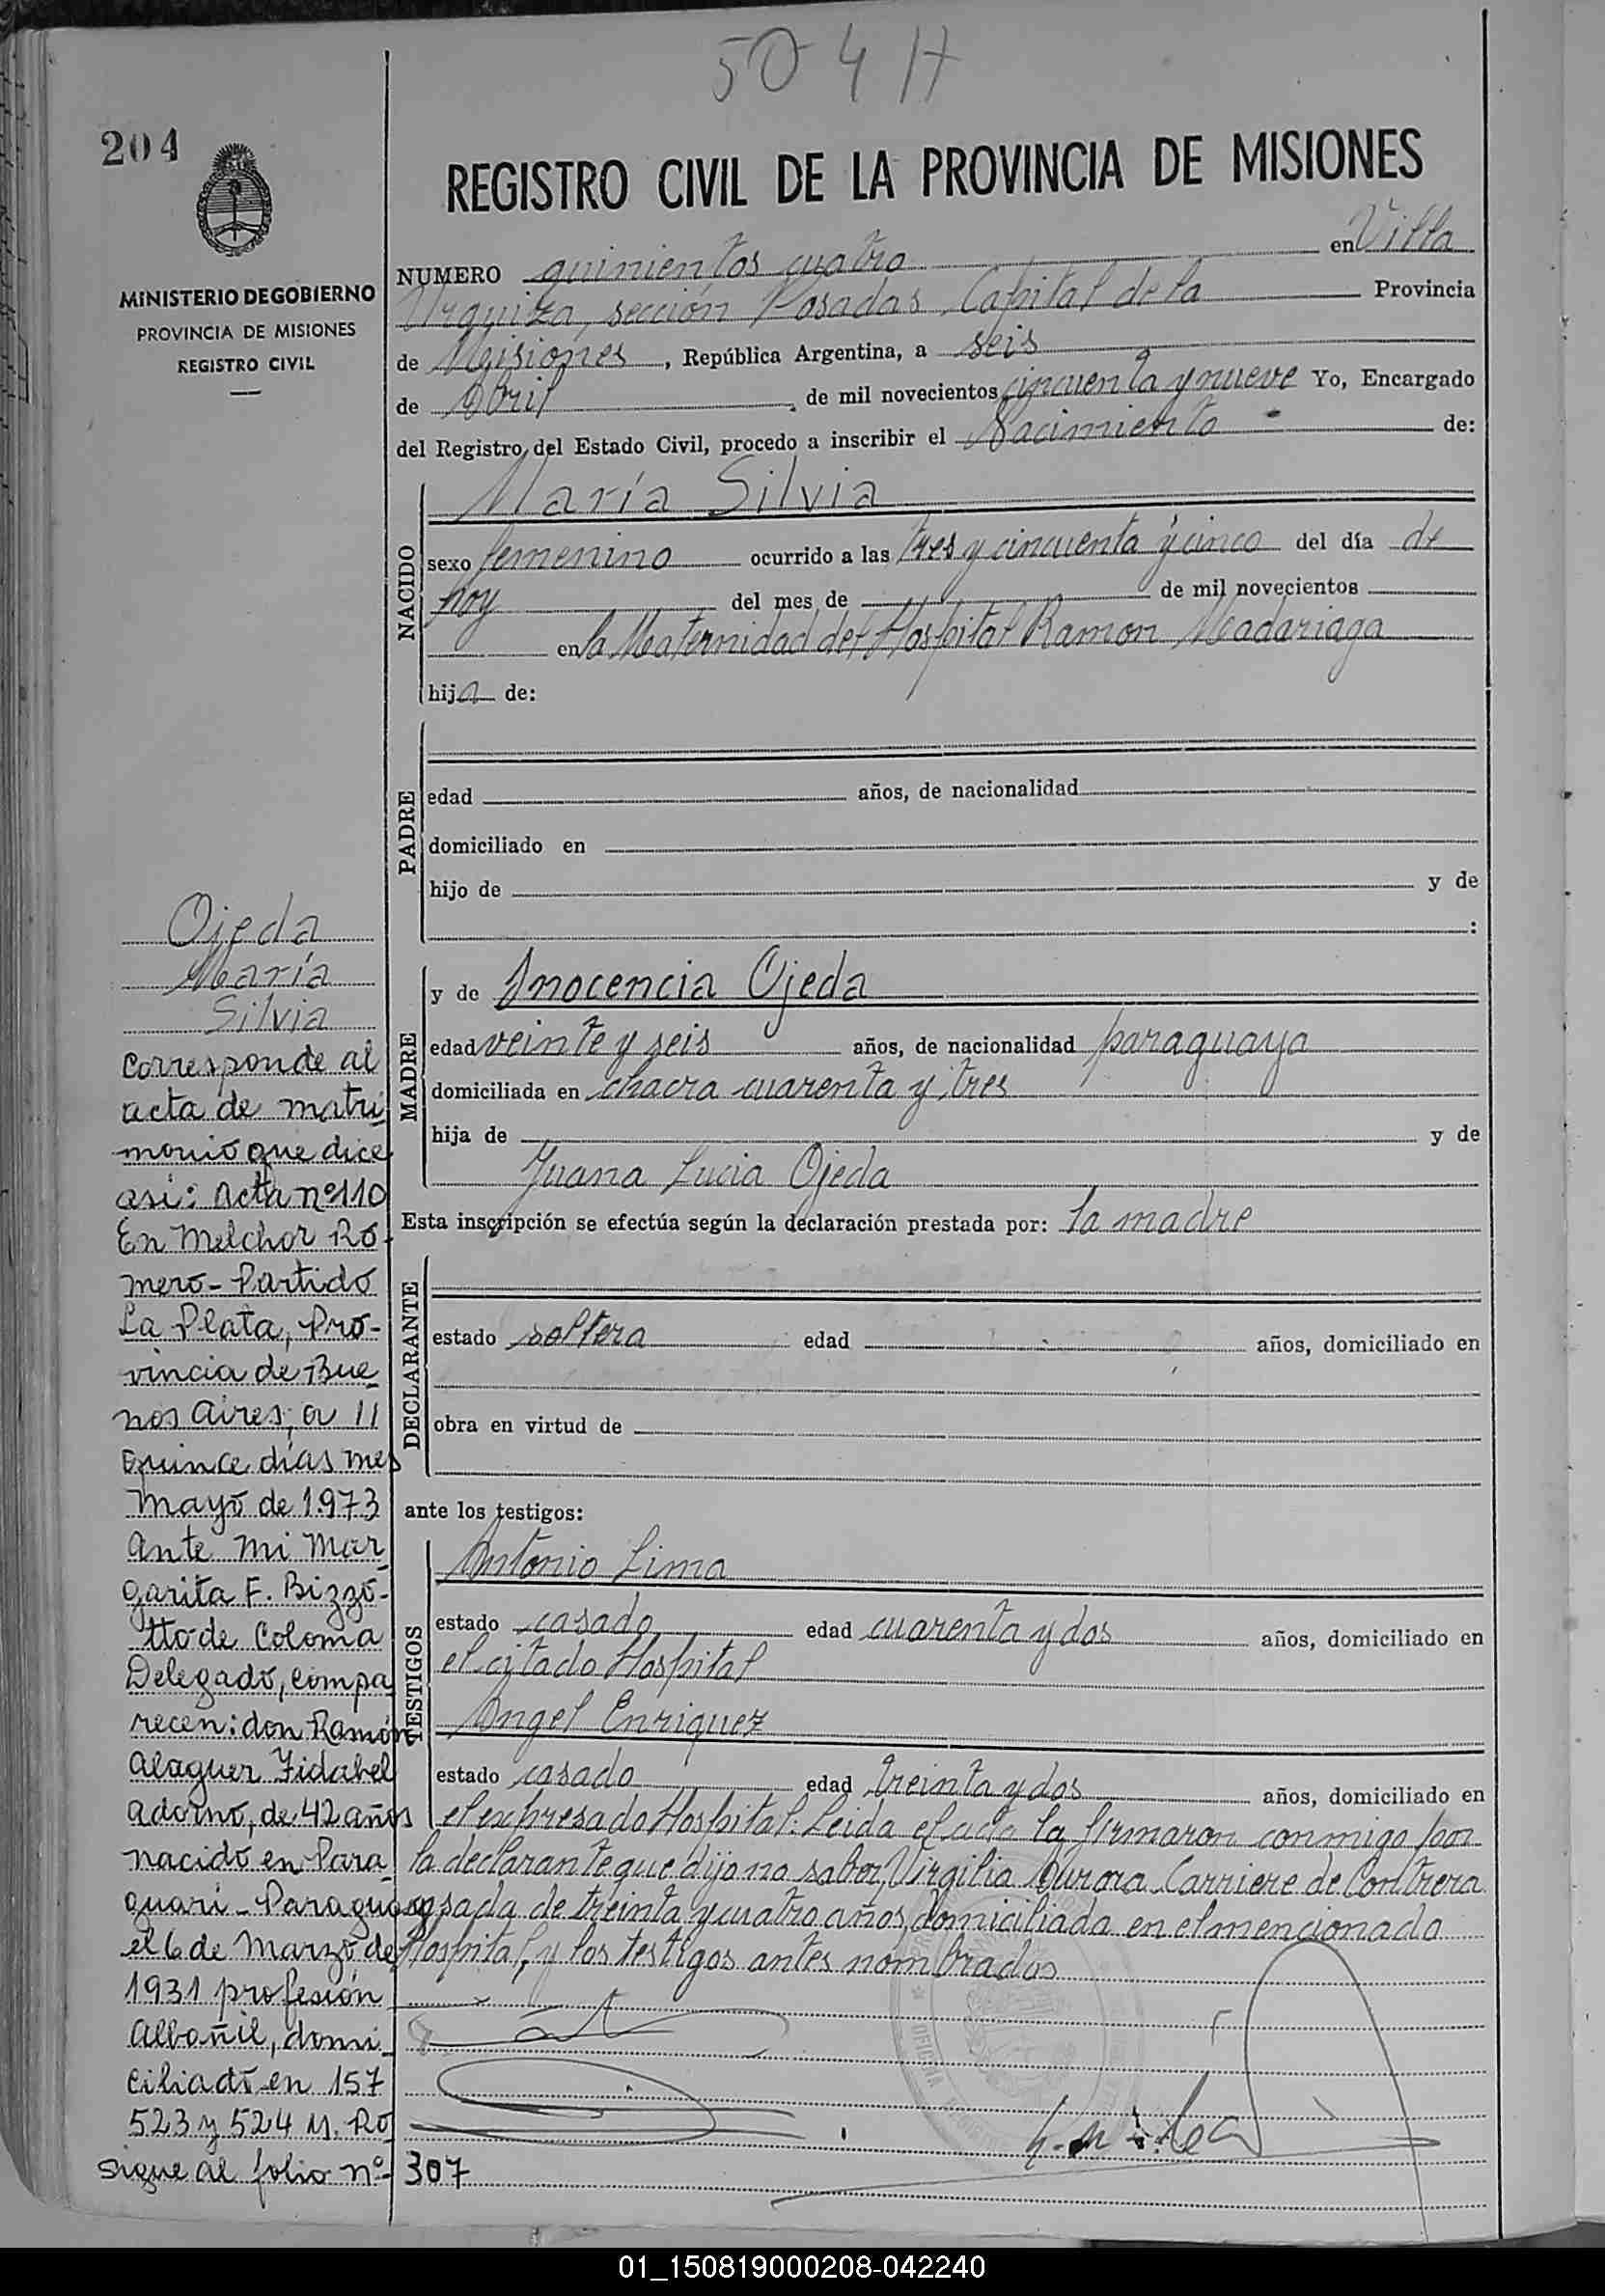 504 H
204
REGISTRO CIVIL DE LA PROVINCIA DE MISIONES
MINISTERIO DE GOBIERNO
PROVINCIA DE MISIONES
REGISTRO CIVIL
NUMERO quinientos cuatro en Villa
Urquiza, sección Posadas, Capital de la Provincia
de Misiones, República Argentina, a seis
de Abril de mil novecientos cincuenta y nueve Yo, Encargado
del Registro del Estado Civil, procedo a inscribir el Nacimiento de:
NACIDO
María Silvia
sexo femenino ocurrido a las tres y cincuenta y cinco del día de
hoy del mes de de mil novecientos
en la Maternidad del Hospital Ramon Madariaga
hija de:
PADRE
edad años, de nacionalidad
domiciliado en
hijo de y de
:
MADRE
y de Inocencia Ojeda
edad veinte y seis años, de nacionalidad paraguaya
domiciliada en chacra cuarenta y tres
hija de y de
Juana Lucia Ojeda
Esta inscripción se efectúa según la declaración prestada por: la madre
DECLARANTE
estado soltera edad años, domiciliado en
obra en virtud de
ante los testigos:
TESTIGOS
Antonio Lima
estado casado edad cuarenta y dos años, domiciliado en
el citado Hospital
Angel Enriquez
estado casado edad treinta y dos años, domiciliado en
el expresado Hospital. Leida el acta la firmaron conmigo por
la declarante que dijo no saber, Virgilia Aurora Carriere de Contrera
casada de treinta y cuatro años, domiciliada en el mencionado
Hospital, y los testigos antes nombrados
Ojeda
María
Silvia
Corresponde al
acta de matri
monio que dice
asi: Acta nº 110
En Melchor Ro-
mero - Partido
La Plata, Pro-
vincia de Bue
nos Aires, a 11
quince días mes
Mayo de 1973
Ante mi Mar
garita F. Bizzo-
tto de Coloma
Delegado, compa
recen: don Ramón
Alaguer Fidabel
Adorno, de 42 años
nacido en Para
guari - Paraguay
el 6 de Marzo de
1931 profesión
Albañil, domi
ciliado en 157
523 y 524 M. Ro
sigue al folio nº 307
01_150819000208-042240